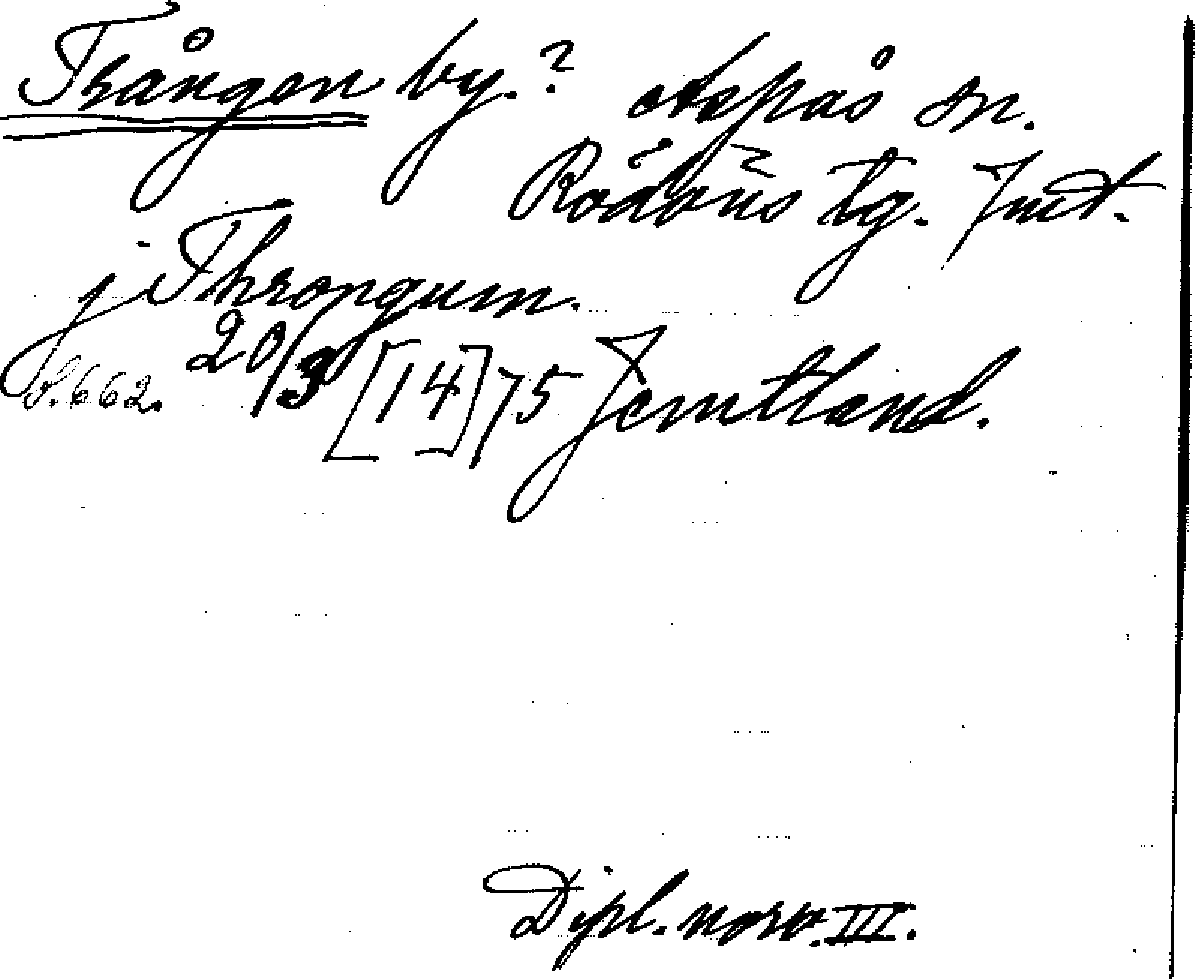 Trången by.? Aspås sn.
Rödöns tg. Jmt.
j Throngum.
S. 662. 20/3 [14]75 Jemtland.
Dipl. norv. III.